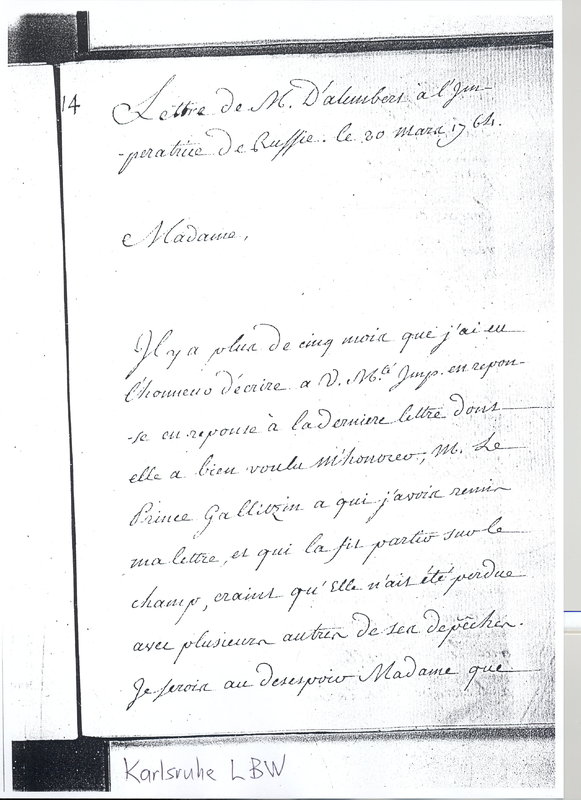 14
Lettre de M. D'alembert à l'Im-
-peratrice de Russie. le 20 mars 1764.
Madame,
Il y a plus de cinq mois que j'ai eu
l'honneur d'écrire a V. M.té Imp. en repon-
-se en reponse à la derniere lettre dont
elle a bien voulu m'honorer, M. Le
Prince Gallitzin a qui j'avois remis
ma lettre, et qui la fit partir sur le
champ, craint qu'Elle n'ait été perdue
avec plusieurs autres de ses depêches.
Je serois au desespoir Madame que
Karlsruhe LBW